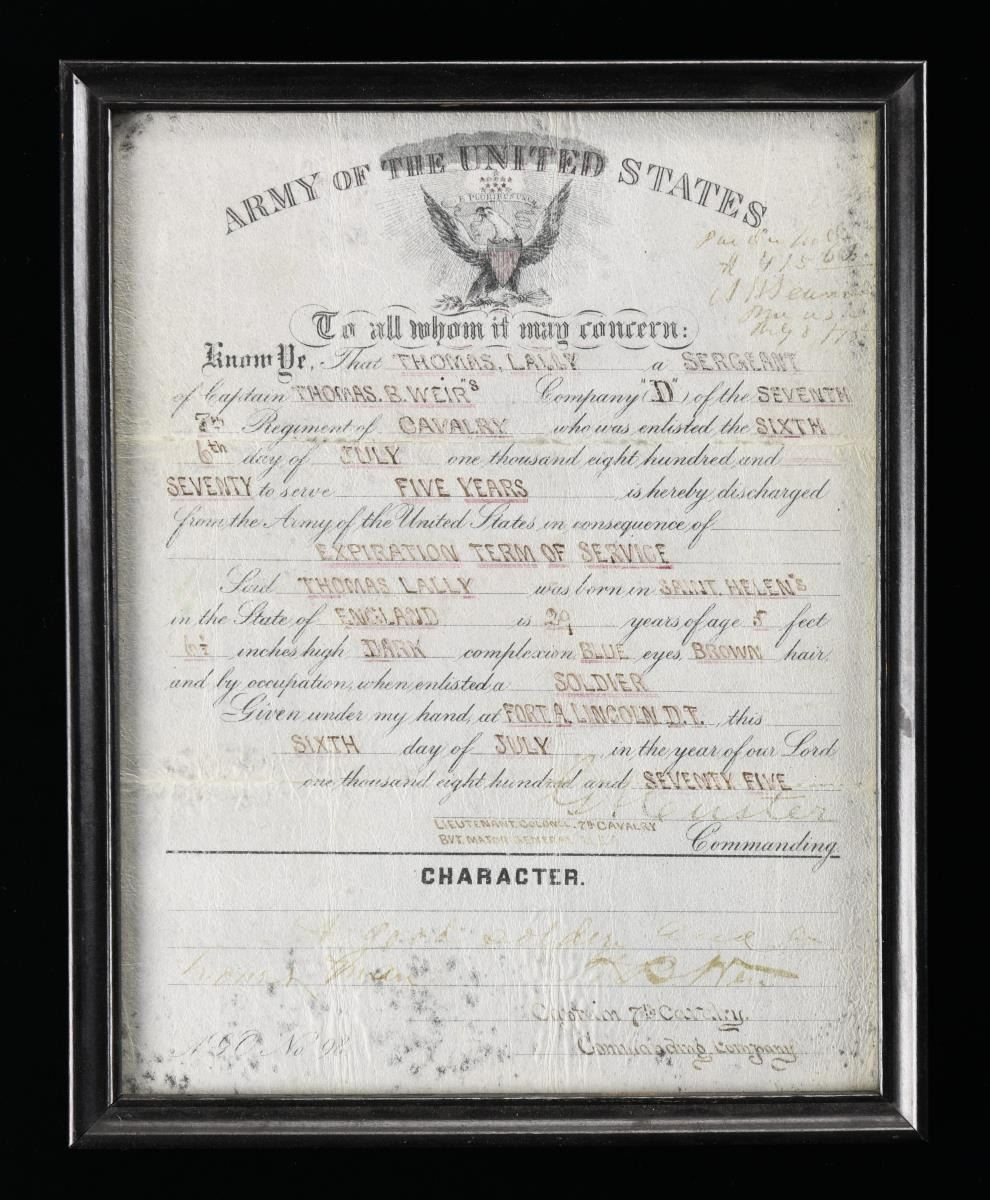 ARMY OF THE UNITED STATES
E PLURIBUS UNUM
To all whom it may concern:
Know Ye, That THOMAS, LALLY a SERGEANT
of Captain THOMAS. B. WEIR"s Company ("D") of the SEVENTH
7th Regiment of CAVALRY who was enlisted the SIXTH
6th day of JULY one thousand eight hundred and
SEVENTY to serve FIVE YEARS is hereby discharged
from the Army of the United States in consequence of
EXPIRATION TERM OF SERVICE
Said THOMAS LALLY was born in SAINT. HELEN"s
in the State of ENGLAND is 29 years of age 5 feet
6½ inches high DARK complexion BLUE eyes BROWN hair
and by occupation, when enlisted a SOLDIER
Given under my hand, at FORT A. LINCOLN D.T. this
SIXTH day of JULY in the year of our Lord
one thousand eight hundred and SEVENTY FIVE
G A Custer
LIEUTENANT COLONEL 7th CAVALRY
BVT. MAJOR GENERAL U.S.A
Commanding
CHARACTER.
A good soldier and an
honest man
Captain 7th Cavalry.
Commanding company
A.G.O. No 92